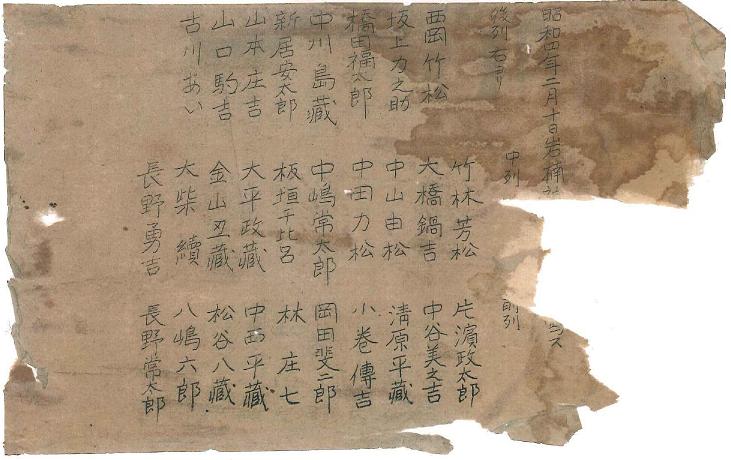 昭和四年二月十日岩楠
後列 右ヨリ
西岡竹松
坂上力之助
橋田福太郎
中川島藏
新居安太郎
山本庄吉
山口駒吉
古川あい
中列
竹林芳松
大橋鍋吉
中山由松
中田力松
中嶋常太郎
板垣千比呂
大平政藏
金山丑藏
大柴 續
長野勇吉
前列
片濱政太郎
中谷美之吉
清原平藏
小巻傳吉
岡田斐二郎
林 庄七
中西平藏
松谷八藏
八嶋六郎
長野常太郎